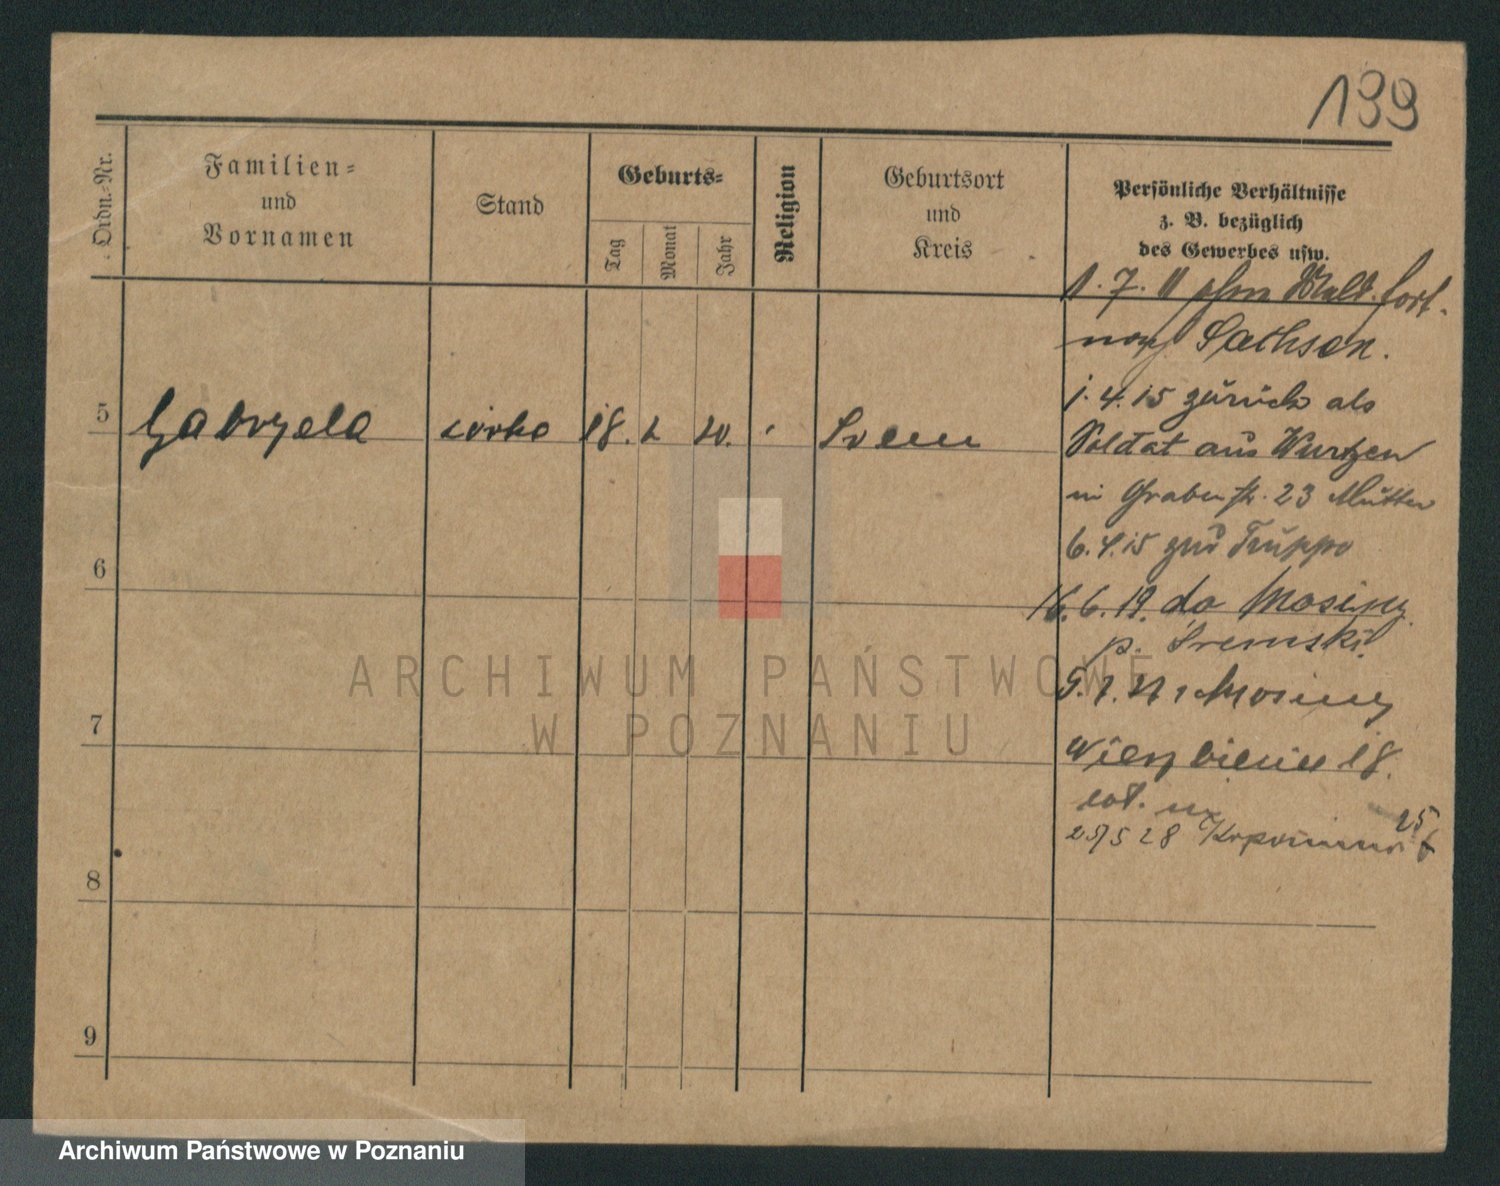 199
Ordn.-Nr.
Familien-
und
Vornamen
Stand
Geburts-
Tag
Monat
Jahr
Religion
Geburtsort
und
Kreis
Persönliche Verhältnisse
z. B. bezüglich
des Gewerbes usw.
1. 7. 11 fort
nach Sachsen.
1. 4. 15 zurück als
5 Gabryela córka 18. 2 20. Srem
Soldat aus Wurzen
in Grabenstr. 23 Mutter
6. 4. 15 zur Truppe
6
16. 6. 19. do Mosiny
p. Sremski
z Mosiny
7
18.
25/5 28
8
9
ARCHIWUM PAŃSTWOWE
W POZNANIU
Archiwum Państwowe w Poznaniu